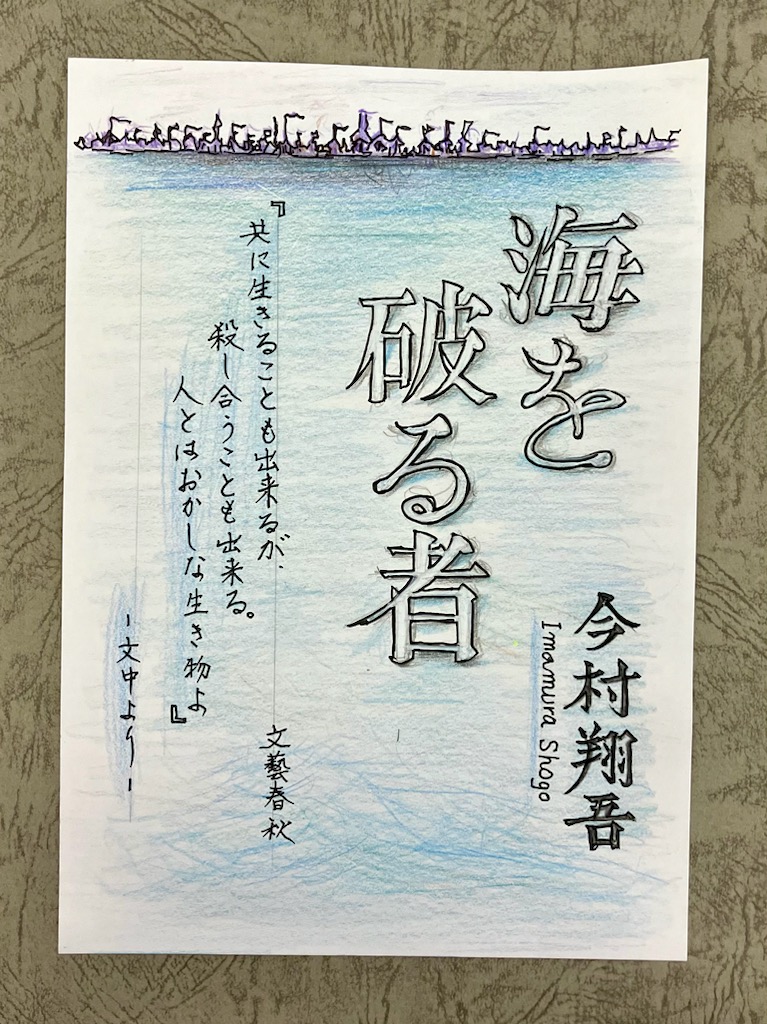 海を
破る者
今村翔吾
Imamura Shogo
『共に生きることも出来るが、
殺し合うことも出来る。
人とはおかしな生き物よ』
-文中より-
文藝春秋